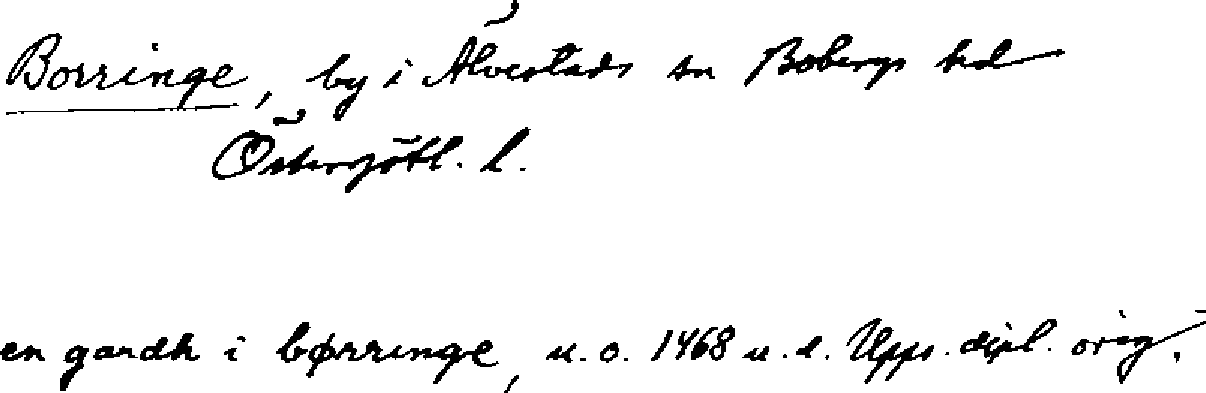 Borringe, by i Älvestads sn Bobergs hd
Östergötl. l.
en gardh i børringe, u.o. 1468 u.d. Upps. dipl. orig.